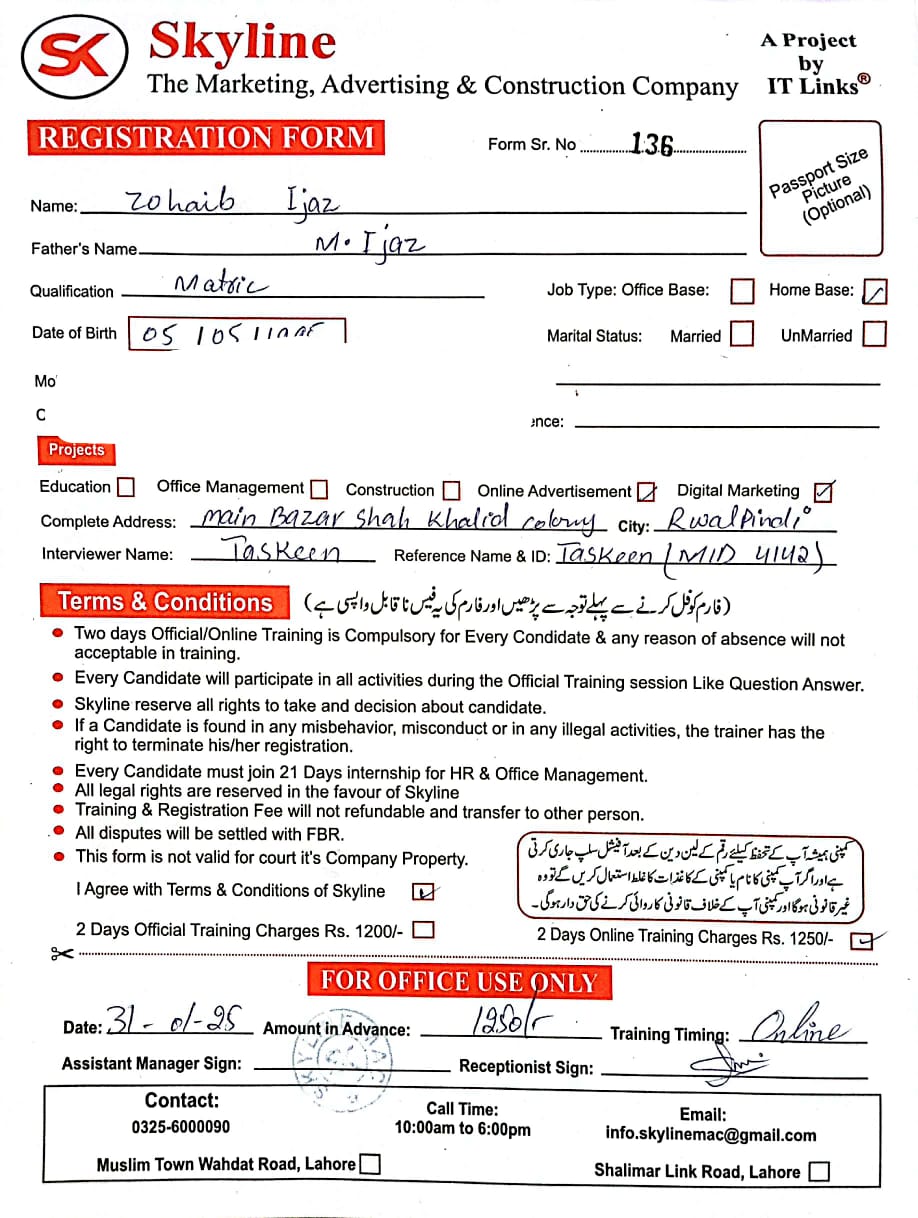 SK Skyline
The Marketing, Advertising & Construction Company
A Project
by
IT Links®
REGISTRATION FORM
Form Sr. No 136
Passport Size
Picture
(Optional)
Name: Zohaib Ijaz
Father's Name M. Ijaz
Qualification Matric
Job Type: Office Base: Home Base:
Date of Birth 05 105
Marital Status: Married UnMarried
Mo
C
nce:
Projects
Education Office Management Construction Online Advertisement Digital Marketing
Complete Address: main Bazar Shah Khalid colony City: RwalPindi
Interviewer Name: Taskeen Reference Name & ID: Taskeen (MID 4142)
Terms & Conditions (فارم کو فل کرنے سے پہلے توجہ سے پڑھیں اور فارم کی یہ فیس ناقابل واپسی ہے)
• Two days Official/Online Training is Compulsory for Every Condidate & any reason of absence will not
acceptable in training.
• Every Candidate will participate in all activities during the Official Training session Like Question Answer.
• Skyline reserve all rights to take and decision about candidate.
• If a Candidate is found in any misbehavior, misconduct or in any illegal activities, the trainer has the
right to terminate his/her registration.
• Every Candidate must join 21 Days internship for HR & Office Management.
• All legal rights are reserved in the favour of Skyline
• Training & Registration Fee will not refundable and transfer to other person.
• All disputes will be settled with FBR.
• This form is not valid for court it's Company Property.
کمپنی ہمیشہ آپ کے تحفظ کیلئے رقم کے لین دین کے بعد آفیشل سلپ جاری کرتی
ہے اور اگر آپ کمپنی کا نام یا کمپنی کے کاغذات کا غلط استعمال کریں گے تو وہ
غیر قانونی ہوگا اور کمپنی آپ کے خلاف قانونی کاروائی کرنے کی حق دار ہوگی۔
I Agree with Terms & Conditions of Skyline
2 Days Official Training Charges Rs. 1200/-
2 Days Online Training Charges Rs. 1250/-
FOR OFFICE USE ONLY
Date: 31-01-25 Amount in Advance: 1250/- Training Timing: Online
Assistant Manager Sign: Receptionist Sign:
Contact:
0325-6000090
Call Time:
10:00am to 6:00pm
Email:
info.skylinemac@gmail.com
Muslim Town Wahdat Road, Lahore
Shalimar Link Road, Lahore